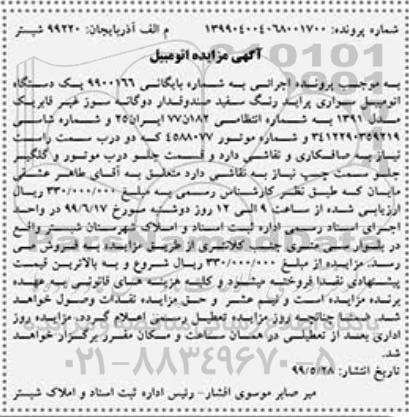 شماره پرونده: ۱۳۹۹۰۴۰۰۴۰۶۸۰۰۱۷۰۰ م الف آذربایجان: ۹۹۲۲۰ شبستر
آگهی مزایده اتومبیل
به موجب پرونده اجرائی به شماره بایگانی ۹۹۰۰۱۶۶ یک دستگاه
اتومبیل سواری پراید رنگ سفید صندوقدار دوگانه سوز غیر فابریک
مدل ۱۳۹۱ به شماره انتظامی ۱۸۲ن۷۷ ایران۲۵ و شماره شاسی
۳۴۱۲۲۹۰۳۵۹۲۱۹ و شماره موتور ۴۵۸۸۰۷۷ که دو درب سمت راست
نیاز به صافکاری و نقاشی دارد و قسمت جلو درب موتور و گلگیر
جلو سمت چپ نیاز به نقاشی دارد متعلق به آقای طاهر عشقی
مایان که طبق نظر کارشناس رسمی به مبلغ ۳۳۰/۰۰۰/۰۰۰ ریال
ارزیابی شده از ساعت ۹ الی ۱۲ روز دوشنبه مورخ ۹۹/۶/۱۷ در واحد
اجرای اسناد رسمی اداره ثبت اسناد و املاک شهرستان شبستر واقع
در بلوار معلم جنب کلانتری از طریق مزایده به فروش می
رسد. مزایده از مبلغ ۳۳۰/۰۰۰/۰۰۰ ریال شروع و به بالاترین قیمت
پیشنهادی نقدا فروخته میشود و کلیه هزینه های قانونی به عهده
برنده مزایده است و نیم عشر و حق مزایده نقدات وصول خواهد
شد. ضمنا چنانچه روز مزایده تعطیل رسمی اعلام گردد، مزایده روز
اداری بعد از تعطیلی در همان ساعت و مکان مقرر برگزار خواهد
شد.
تاریخ انتشار: ۹۹/۵/۲۸
میر صابر موسوی افشار- رئیس اداره ثبت اسناد و املاک شبستر
۰۲۱-۸۸۳۴۹۶۷۰-۵